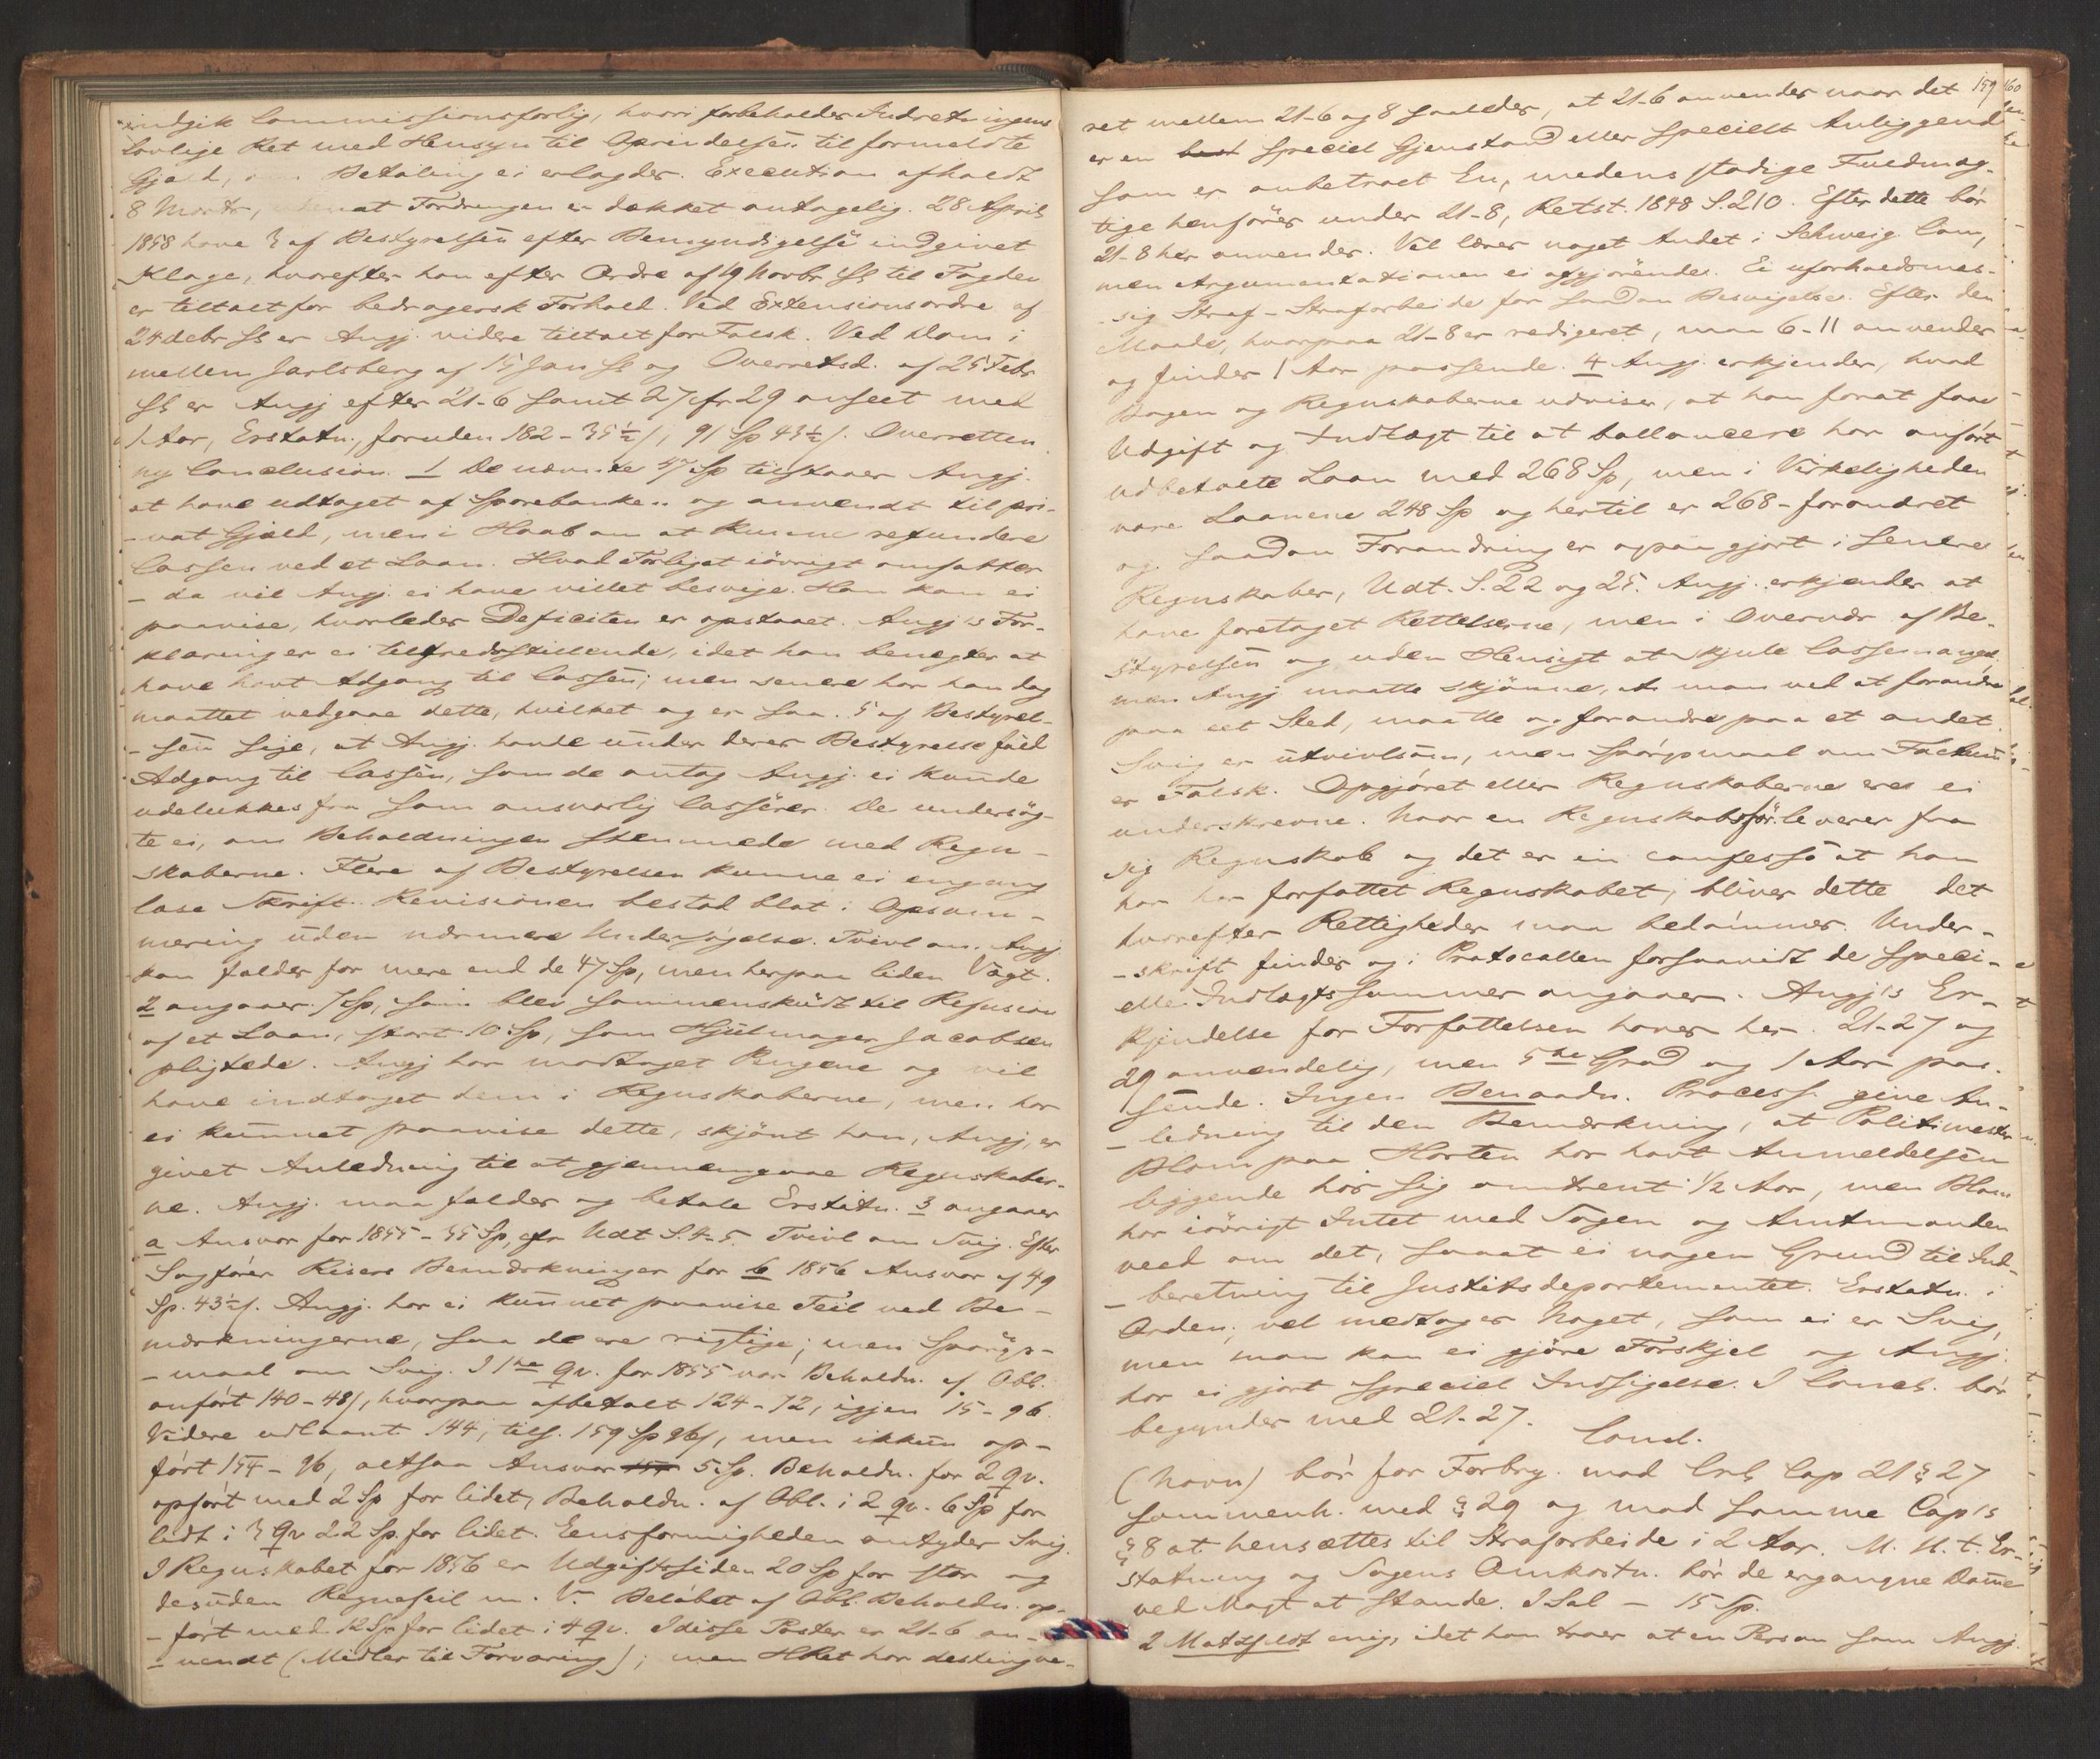 indgik Commissionsforlig, hvori forbeholdes Indretningens
lovlige Ret med Hensyn til Oprindelsen til formeldte
Gjæld, om Betaling ei erlagdes. Execution afholdt
8 Martr, uden at Fordringen er dækket antagelig. 28 April
1858 have 3 af Bestyrelsen efter Bemyndigelse indgivet
Klage, hvorefter han efter Ordre af 19 Novbr s. A. til Fogden
er tiltalt for bedragersk Forhold. Ved Extensionsordre af
24 debr er Angj. videre tiltalt for Falsk. Ved Dom i
mellem Jarlsberg af 15 Jan og Overretsd. af 25 Febr
er Angj efter 21-6 samt 27 cfr 29 anseet med
1 Aar, Erstatn., foruden 182 - 35½ /, 91 Sp 43½ /. Overretten
ny Conclusion. 1 De nævnte 47 Sp tilstaaer Angj.
at have udtaget af Sparebanken og anvendt til pri-
-vat Gjæld, men i Haab om at kunne refundere
Cassen ved et Laan. Hvad Forliget iövrigt omfatter
- da vil Angj. ei have villet besvige. Han kan ei
paavise, hvorledes Deficiten er opstaaet. Angj's For-
klaring er ei tilfredsstillende, idet han benegter at
have havt Adgang til Cassen; men senere har han dog
maattet vedgaae dette, hvilket og er saa. 5 af Bestyrel-
-sen sige, at Angj. havde under deres Bestyrelse fuld
Adgang til Cassen, som de antog Angj. ei kunde
udelukkes fra som ansvarlig Casserer. De undersög-
te ei, om Beholdningen stemmede med Regn-
skaberne. Flere af Bestyrelsen kunne ei engang
læse Skrift. Revisionen bestod blot i Opsum-
mering uden nærmere Undersögelse. Tvivl om Angj
kan fældes for mere end de 47 Sp, men herpaa liden Vægt.
2 angaaer 7 Sp, som blev sammenskudt til Refusion
af et Laan, stort 10 Sp, som Hjulmager Jacobsen
pligtede. Angj har modtaget Pengene og vil
have indtaget dem i Regnskaberne, men har
ei kunnet paavise dette, skjönt han, Angj, er
givet Anledning til at gjennemgaae Regnskaber-
ne. Angj. maa fældes og betale Erstatn. 3 angaaer
a Ansvar for 1855 - 35 Sp, cfr Udt S. 4-5. Tvivl om Svig. Efter
Sagförer Risers Bemærkninger for b 1856 Ansvar af 49
Sp. 43½ /. Angj. har ei kunnet paavise Feil ved Be-
mærkningerne, saa de ere rigtige; men Spörgs-
-maal om Svig. I 1ste Qv. for 1855 var Beholdn. af Obl.
anfört 140 - 48/, hvorpaa afbetalt 124 - 72, igjen 15 - 96
Videre udlaant 144, tils. 159 Sp 96/, men ikkun op-
fört 154 - 96, altsaa Ansvar 5 Sp. Beholdn. for 2 Qv.
opfört med 2 Sp for lidet, Beholdn. af Obl. i 2 Qv. 6 Sp for
lidt i 3 Qv 22 Sp. for lidet. Eensformigheden antyder Svig.
I Regnskabet for 1856 er Udgiftssiden 20 Sp for stor og
desuden Regnefeil m. V. Belöbet af Obl. Beholdn. op-
-fört med 12 Sp for lidet i 4 Qv. I disse Poster er 21-6 an-
-vendt (Midler til Forvaring); men HRet har destingve-
159
160
ret mellem 21-6 og 8 saaledes, at 21-6 anvendes naar det
er en speciel Gjenstand eller specielt Anliggende
som er anbetroet En, medens stadige Fuldmæg-
tige henföres under 21-8, Retst. 1848 S. 210. Efter dette bör
21-8 her anvendes. Vel læres noget Andet i Schweig. Com,
men Argumentationen ei afgjörende. Ei uforholdsmæs-
-sig Straf - Strafarbeide for saadan Besvigelse. Efter den
Maade, hvorpaa 21-8 er redigeret, maa 6-11 anvendes
og finder 1 Aar passende. 4 Angj. erkjender, hvad
Bogen og Regnskaberne udviser, at han forat faae
Udgift og Indtægt til at ballancere har anfört
udbetalte Laan med 268 Sp, men i Virkeligheden
vare Laanene 248 Sp og hertil er 268 - forandret
og saadan Forandring er ogsaa gjort i senere
Regnskaber, Udt. S. 22 og 25. Angj. erkjender at
have foretaget Rettelserne, men i Overvær af Be-
styrelsen og uden Hensigt at skjule Cassemangel.
men Angj maatte skjönne, at man ved at forandre
paa eet Sted, maatte og forandre paa et andet.
Svig er utvivlsom, men Spörgsmaal om Factum
er Falsk. Opgjöret eller Regnskaberne ere ei
underskrevne. Naar en Regnskabsför. leverer fra
sig Regnskab og det er in confesso at han
har forfattet Regnskabet, bliver dette det
hvorefter Rettigheder maa bedömmes. Under-
-skrift findes og i Protocollen forsaavidt de speci-
elle Indtægtssummer angaaer. Angj's Er-
kjendelse for Forfattelsen haves her. 21-27 og
29 anvendelig, men 5te Grad og 1 Aar pas-
sende. Ingen Benaadn. Process. give An-
-ledning til den Bemærkning, at Politimester
Blom paa Horten har havt Anmeldelsen
liggende hos sig omtrent ½ Aar, men Blom
har iövrigt Intet med Sagen og Amtmanden
veed om det, saaat ei nogen Grund til Ind-
-beretning til Justitsdepartementet. Erstatn. i
Orden, vel medtages Noget, som ei er Svig,
men man kan ei gjöre Forskjel og Angj.
har ei gjort speciel Indsigelse. I Concl. bör
begyndes med 21-27.
Concl.
(Navn) bör for Forbry. mod Crl Cap 21 § 27
sammenh. med § 29 og mod samme Cap's
§ 8 at hensættes til Strafarbeide i 2 Aar. M. H. t. Er-
statning og Sagens Omkostn. bör de ergangne Domme
ved Magt at stande. I Sal - 15 Sp.
2 Motzfeldt enig, idet han troer at en Person som Angj.